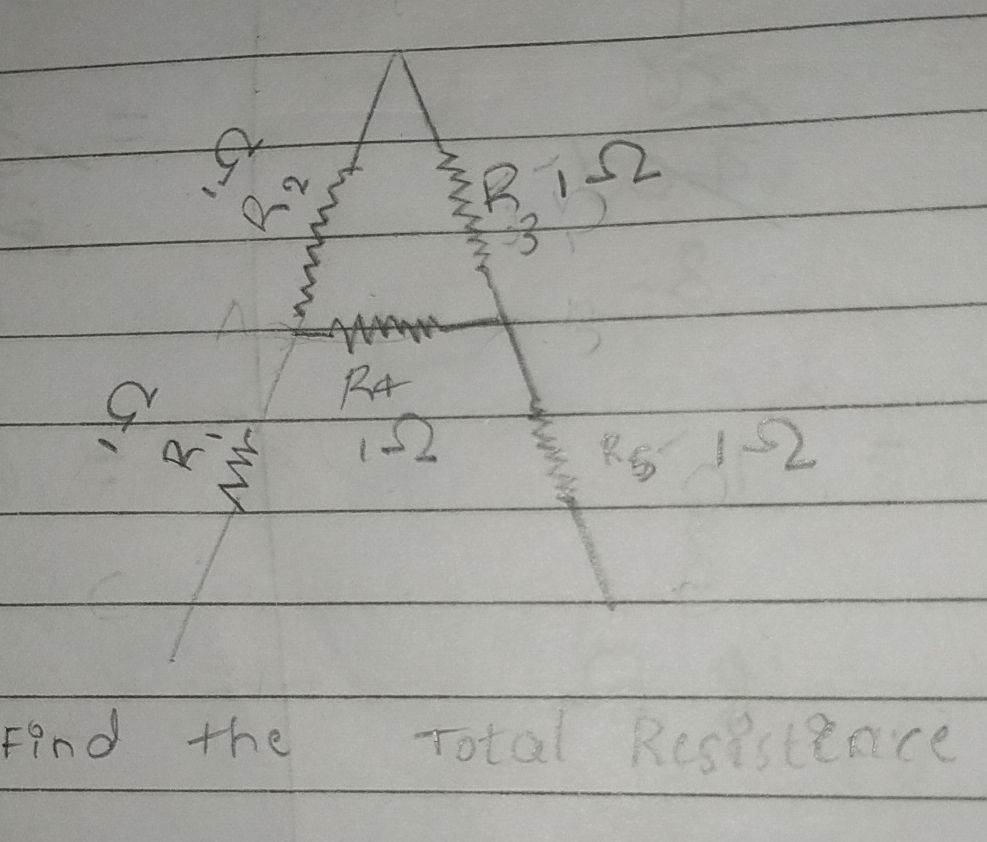 1Ω
R2
R3 1Ω
R4
1Ω
1Ω
R1
R5 1Ω
Find the Total Resistence